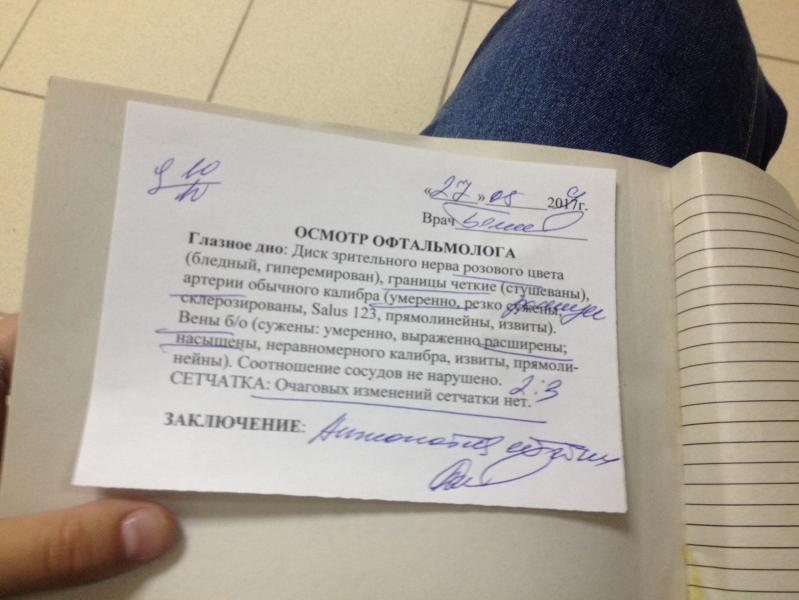 10
«27» 05 2017г.
Врач
ОСМОТР ОФТАЛЬМОЛОГА
Глазное дно: Диск зрительного нерва розового цвета
(бледный, гиперемирован), границы четкие (стушеваны),
артерии обычного калибра (умеренно, резко сужены,
склерозированы, Salus 123, прямолинейны, извиты).
Вены б/о (сужены: умеренно, выраженно расширены;
насыщены, неравномерного калибра, извиты, прямоли-
нейны). Соотношение сосудов не нарушено. 2:3
СЕТЧАТКА: Очаговых изменений сетчатки нет.
ЗАКЛЮЧЕНИЕ: Ангиопатия сетчатки